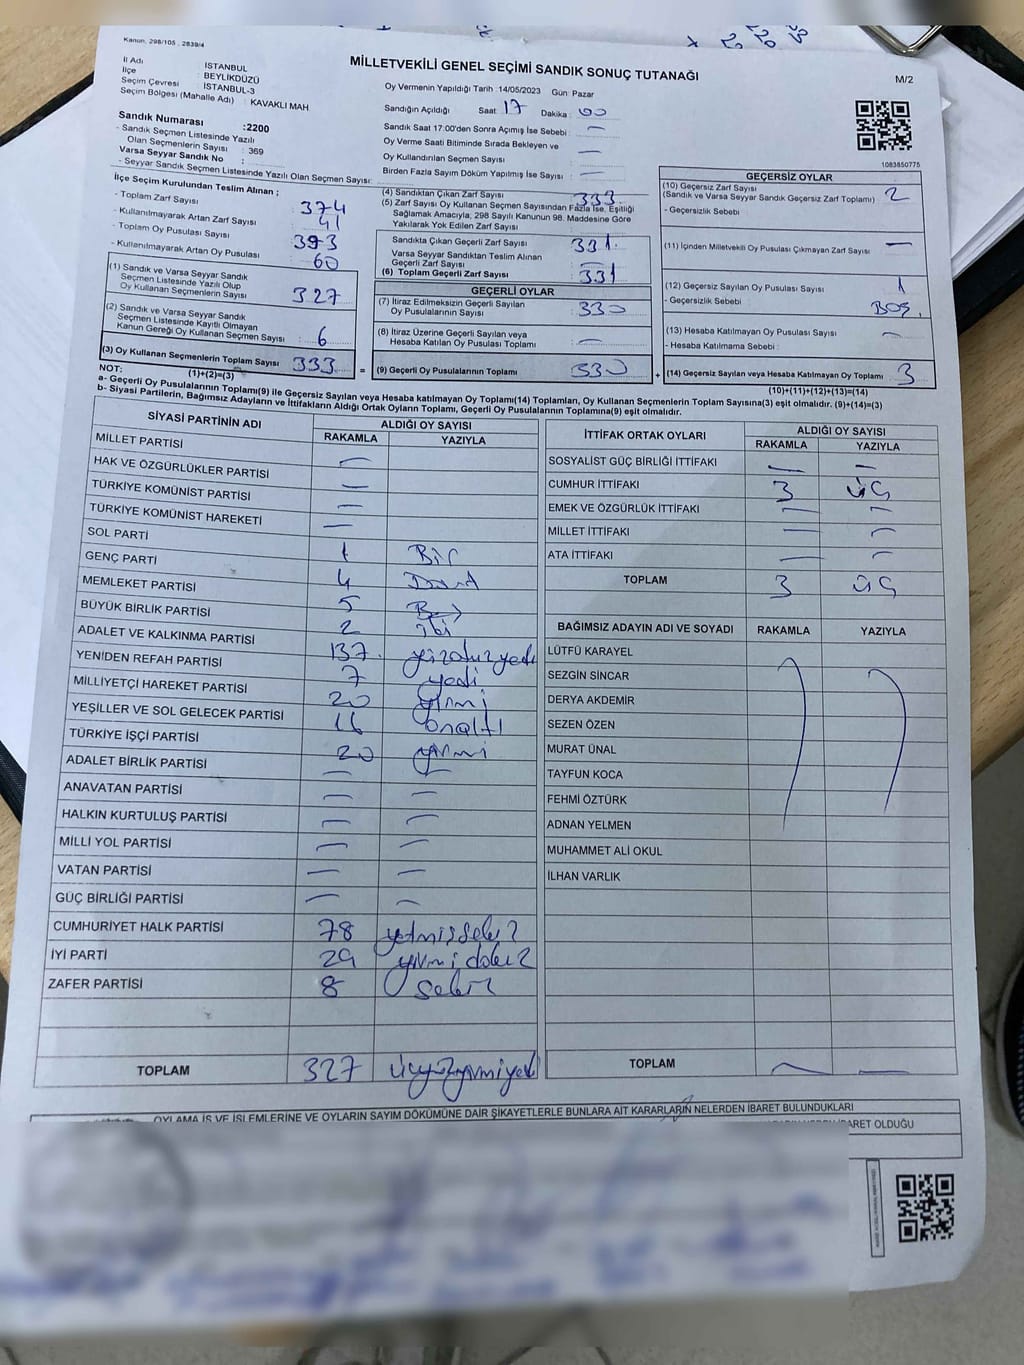 Kanun, 298/105 , 2839/4
MİLLETVEKİLİ GENEL SEÇİMİ SANDIK SONUÇ TUTANAĞI
M/2
İl Adı : İSTANBUL
İlçe : BEYLİKDÜZÜ
Seçim Çevresi : İSTANBUL-3
Seçim Bölgesi (Mahalle Adı) : KAVAKLI MAH
Sandık Numarası :2200
- Sandık Seçmen Listesinde Yazılı
Olan Seçmenlerin Sayısı : 369
Varsa Seyyar Sandık No :
- Seyyar Sandık Seçmen Listesinde Yazılı Olan Seçmen Sayısı:
Oy Vermenin Yapıldığı Tarih :14/05/2023 Gün: Pazar
Sandığın Açıldığı Saat 17 Dakika : 00
Sandık Saat 17:00'den Sonra Açımış İse Sebebi : —
Oy Verme Saati Bitiminde Sırada Bekleyen ve
Oy Kullandırılan Seçmen Sayısı : —
Birden Fazla Sayım Döküm Yapılmış İse Sayısı : —
1083850775
İlçe Seçim Kurulundan Teslim Alınan ;
- Toplam Zarf Sayısı : 374
- Kullanılmayarak Artan Zarf Sayısı : 41
- Toplam Oy Pusulası Sayısı : 393
- Kullanılmayarak Artan Oy Pusulası : 60
(1) Sandık ve Varsa Seyyar Sandık
Seçmen Listesinde Yazılı Olup
Oy Kullanan Seçmenlerin Sayısı : 327
(2) Sandık ve Varsa Seyyar Sandık
Seçmen Listesinde Kayıtlı Olmayan
Kanun Gereği Oy Kullanan Seçmen Sayısı : 6
(3) Oy Kullanan Seçmenlerin Toplam Sayısı : 333
(1)+(2)=(3)
(4) Sandıktan Çıkan Zarf Sayısı : 333
(5) Zarf Sayısı Oy Kullanan Seçmen Sayısından Fazla İse, Eşitliği
Sağlamak Amacıyla, 298 Sayılı Kanunun 98. Maddesine Göre
Yakılarak Yok Edilen Zarf Sayısı :
Sandıkta Çıkan Geçerli Zarf Sayısı : 331
Varsa Seyyar Sandıktan Teslim Alınan
Geçerli Zarf Sayısı : —
(6) Toplam Geçerli Zarf Sayısı : 331
GEÇERLİ OYLAR
(7) İtiraz Edilmeksizin Geçerli Sayılan
Oy Pusulalarının Sayısı : 330
(8) İtiraz Üzerine Geçerli Sayılan veya
Hesaba Katılan Oy Pusulası Toplamı : —
= (9) Geçerli Oy Pusulalarının Toplamı 330
GEÇERSİZ OYLAR
(10) Geçersiz Zarf Sayısı : 2
(Sandık ve Varsa Seyyar Sandık Geçersiz Zarf Toplamı)
- Geçersizlik Sebebi :
(11) İçinden Milletvekili Oy Pusulası Çıkmayan Zarf Sayısı : —
(12) Geçersiz Sayılan Oy Pusulası Sayısı : 1
- Geçersizlik Sebebi : BOŞ.
(13) Hesaba Katılmayan Oy Pusulası Sayısı : —
- Hesaba Katılmama Sebebi :
+ (14) Geçersiz Sayılan veya Hesaba Katılmayan Oy Toplamı : 3
(10)+(11)+(12)+(13)=(14)
NOT:
a- Geçerli Oy Pusulalarının Toplamı(9) ile Geçersiz Sayılan veya Hesaba katılmayan Oy Toplamı(14) Toplamları, Oy Kullanan Seçmenlerin Toplam Sayısına(3) eşit olmalıdır. (9)+(14)=(3)
b- Siyasi Partilerin, Bağımsız Adayların ve İttifakların Aldığı Ortak Oyların Toplamı, Geçerli Oy Pusulalarının Toplamına(9) eşit olmalıdır.
SİYASİ PARTİNİN ADI ALDIĞI OY SAYISI
RAKAMLA YAZIYLA
MİLLET PARTİSİ —
HAK VE ÖZGÜRLÜKLER PARTİSİ —
TÜRKİYE KOMÜNİST PARTİSİ —
TÜRKİYE KOMÜNİST HAREKETİ —
SOL PARTİ 1 Bir
GENÇ PARTİ 4 Dört
MEMLEKET PARTİSİ 5 Beş
BÜYÜK BİRLİK PARTİSİ 2 iki
ADALET VE KALKINMA PARTİSİ 137 yüzotuzyedi
YENİDEN REFAH PARTİSİ 7 yedi
MİLLİYETÇİ HAREKET PARTİSİ 20 yirmi
YEŞİLLER VE SOL GELECEK PARTİSİ 16 onaltı
TÜRKİYE İŞÇİ PARTİSİ 20 yirmi
ADALET BİRLİK PARTİSİ — —
ANAVATAN PARTİSİ — —
HALKIN KURTULUŞ PARTİSİ — —
MİLLİ YOL PARTİSİ — —
VATAN PARTİSİ — —
GÜÇ BİRLİĞİ PARTİSİ — —
CUMHURİYET HALK PARTİSİ 78 yetmişsekiz
İYİ PARTİ 29 yirmidokuz
ZAFER PARTİSİ 8 sekiz
TOPLAM 327 üçyüzyirmiyedi
İTTİFAK ORTAK OYLARI ALDIĞI OY SAYISI
RAKAMLA YAZIYLA
SOSYALİST GÜÇ BİRLİĞİ İTTİFAKI — —
CUMHUR İTTİFAKI 3 üç
EMEK VE ÖZGÜRLÜK İTTİFAKI — —
MİLLET İTTİFAKI — —
ATA İTTİFAKI — —
TOPLAM 3 üç
BAĞIMSIZ ADAYIN ADI VE SOYADI RAKAMLA YAZIYLA
LÜTFÜ KARAYEL
SEZGİN SİNCAR
DERYA AKDEMİR
SEZEN ÖZEN
MURAT ÜNAL
TAYFUN KOCA
FEHMİ ÖZTÜRK
ADNAN YELMEN
MUHAMMET ALİ OKUL
İLHAN VARLIK
TOPLAM — —
OYLAMA İŞ VE İŞLEMLERİNE VE OYLARIN SAYIM DÖKÜMÜNE DAİR ŞİKAYETLERLE BUNLARA AİT KARARLARIN NELERDEN İBARET BULUNDUKLARI
İBARET OLDUĞU